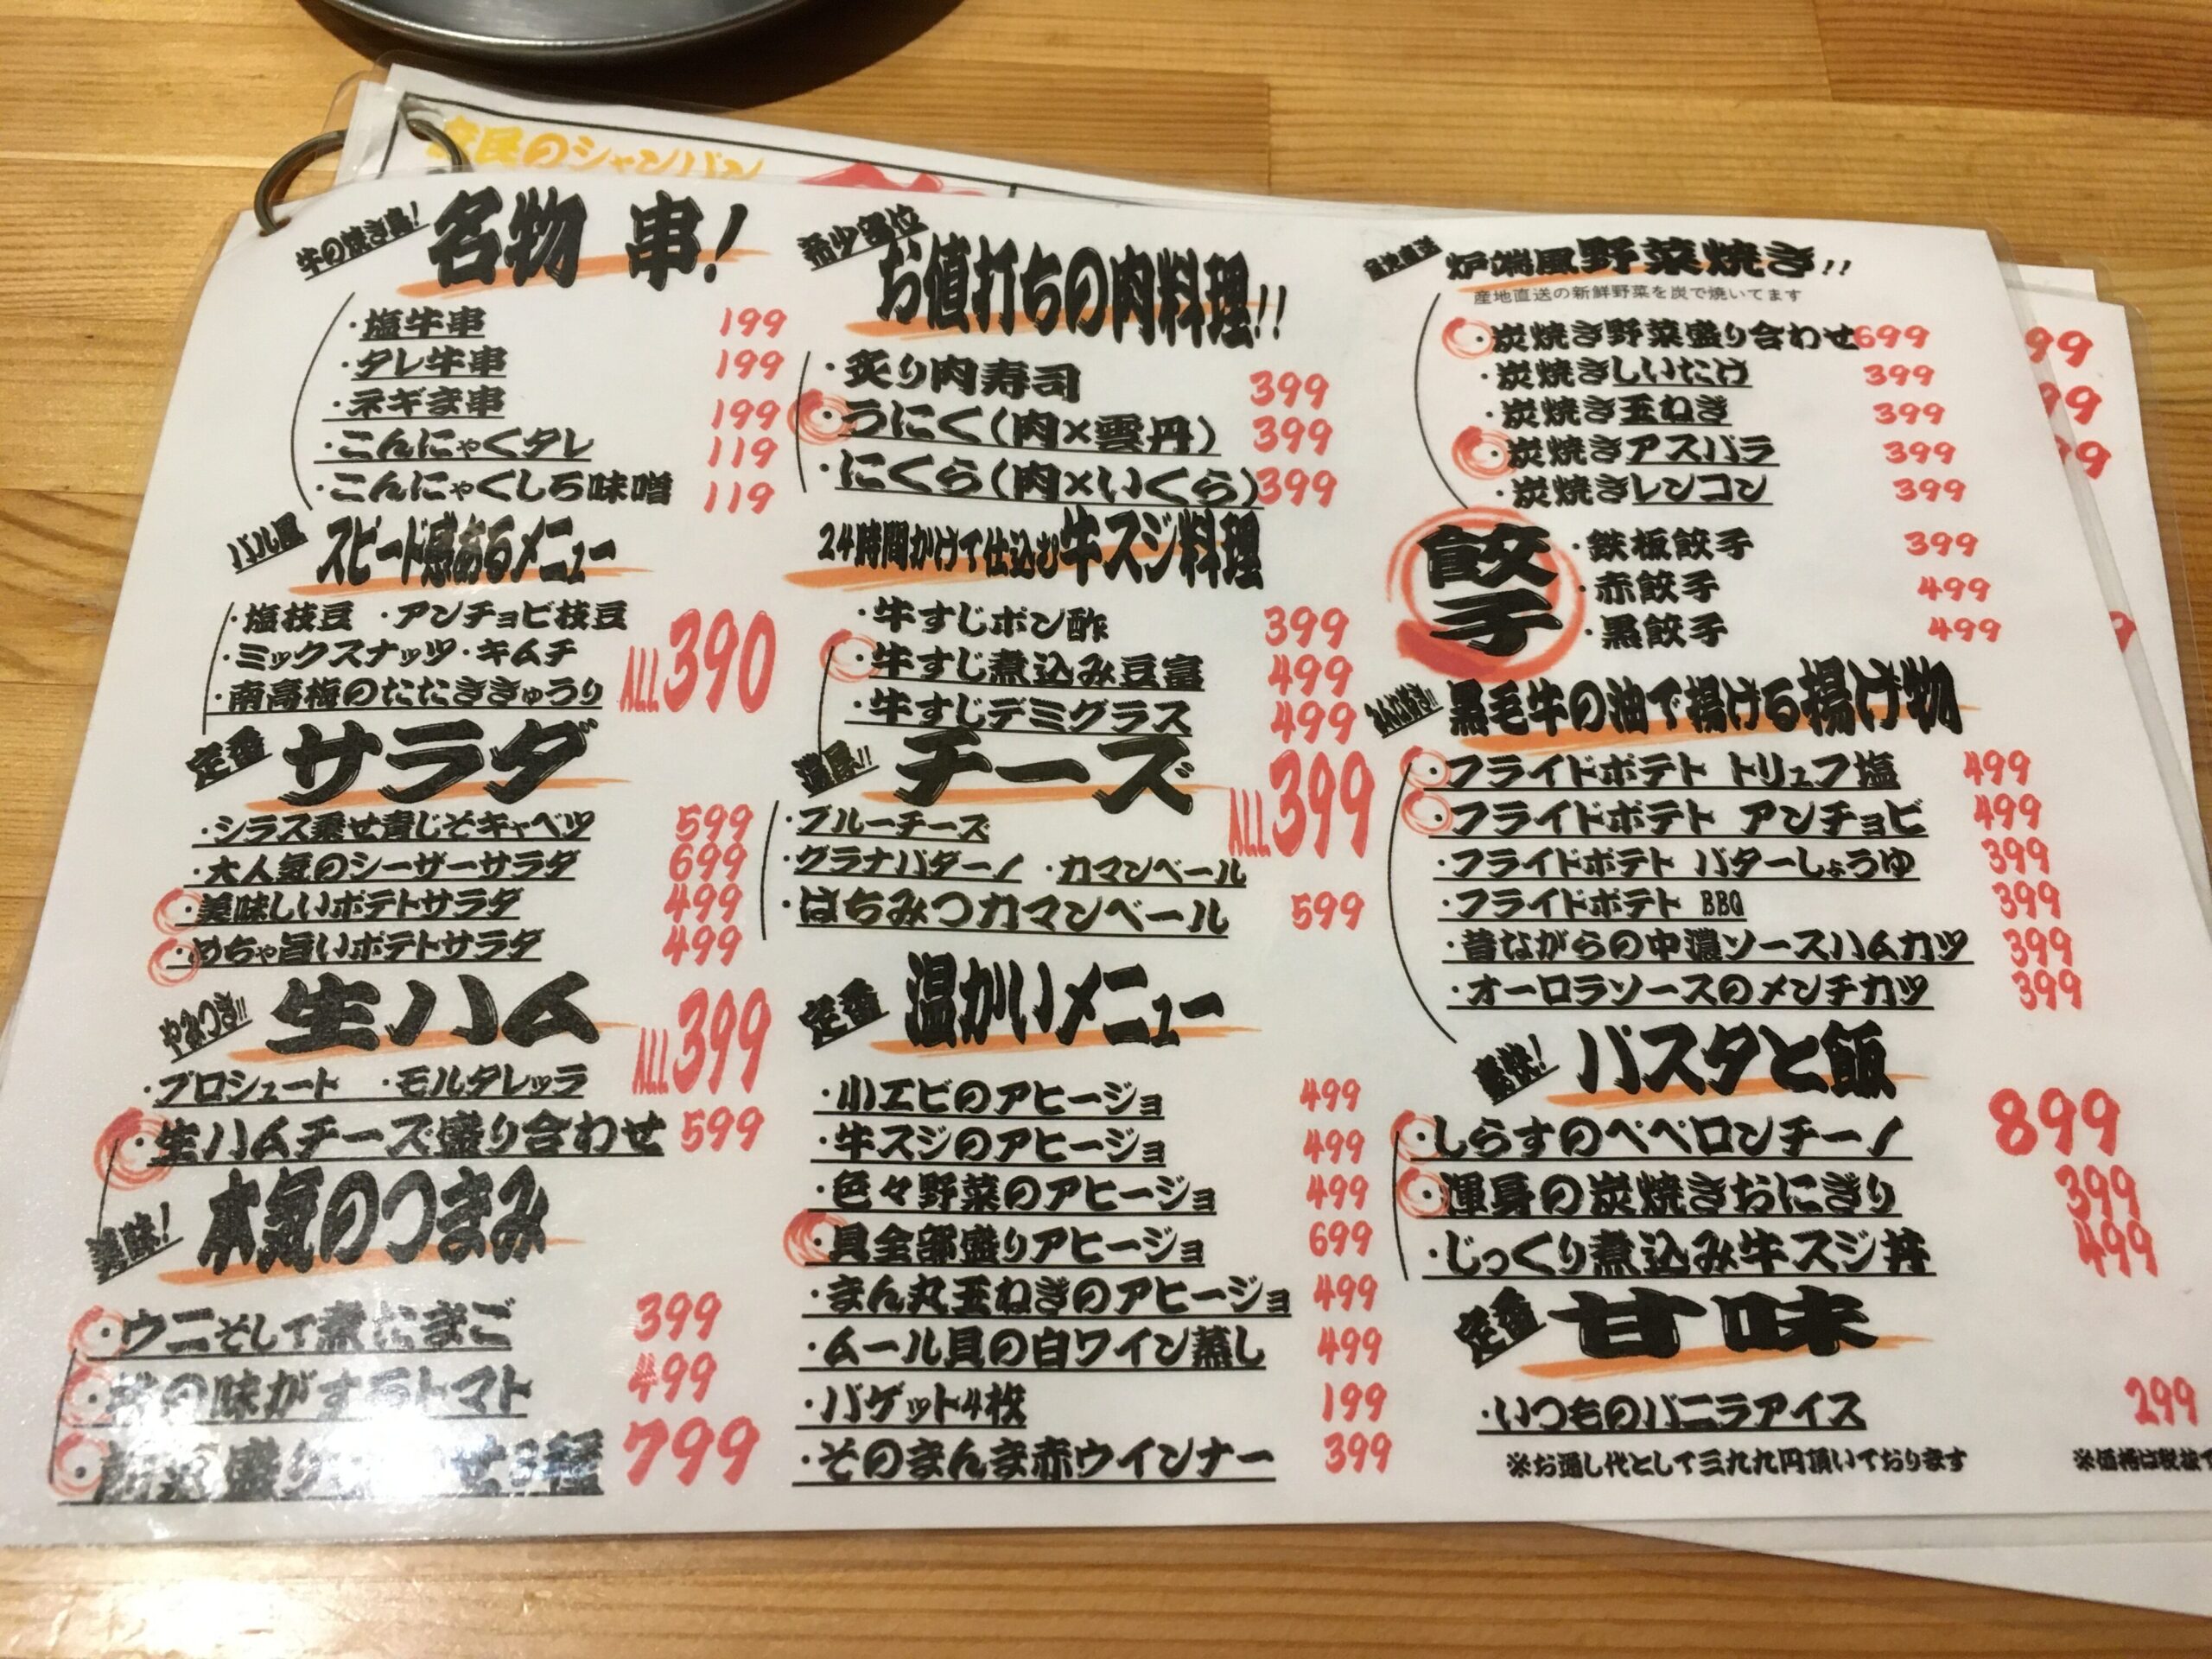 庶民のシャンパン
牛の焼き鳥!
名物 串!
・塩牛串 199
・タレ牛串 199
・ネギま串 199
・こんにゃくタレ 119
・こんにゃくしろ味噌 119
バル風
スピード感あるメニュー
・塩枝豆 ・アンチョビ枝豆
・ミックスナッツ・キムチ
・南高梅のたたききゅうり
ALL390
定番
サラダ
・シラス乗せ青じそキャベツ 599
・大人気のシーザーサラダ 699
・美味しいポテトサラダ 499
・めちゃ旨いポテトサラダ 499
やみつき!!
生ハム
ALL399
・プロシュート ・モルタレッラ
・生ハムチーズ盛り合わせ 599
美味!
本気のつまみ
・ウニそして煮たまご 399
の味がするトマト 499
盛り わせ3種 799
希少部位
お値打ちの肉料理!!
・炙り肉寿司 399
・うにく(肉×雲丹) 399
・にくら(肉×いくら) 399
24時間かけて仕込む牛スジ料理
・牛すじポン酢 399
・牛すじ煮込み豆富 499
・牛すじデミグラス 499
濃厚!!
チーズ
ALL399
・ブルーチーズ
・グラナパダーノ ・カマンベール
・はちみつカマンベール 599
定番
温かいメニュー
・小エビのアヒージョ 499
・牛スジのアヒージョ 499
・色々野菜のアヒージョ 499
・具全部盛りアヒージョ 699
・まん丸玉ねぎのアヒージョ 499
・ムール貝の白ワイン蒸し 499
・バゲット4枚 199
・そのまんま赤ウインナー 399
産地直送
炉端風野菜焼き!!
産地直送の新鮮野菜を炭で焼いてます
・炭焼き野菜盛り合わせ 699
・炭焼きしいたけ 399
・炭焼き玉ねぎ 399
・炭焼きアスパラ 399
・炭焼きレンコン 399
餃子
・鉄板餃子 399
・赤餃子 499
・黒餃子 499
みんな好き!!
黒毛牛の油で揚げる揚げ物
・フライドポテト トリュフ塩 499
・フライドポテト アンチョビ 499
・フライドポテト バターしょうゆ 399
・フライドポテト BBQ 399
・昔ながらの中濃ソースハムカツ 399
・オーロラソースのメンチカツ 399
豪快!
パスタと飯
・しらすのペペロンチーノ 899
・渾身の炭焼きおにぎり 399
・じっくり煮込み牛スジ丼 499
定番
甘味
・いつものバニラアイス 299
※お通し代として三九九円頂いております
※価格は税抜